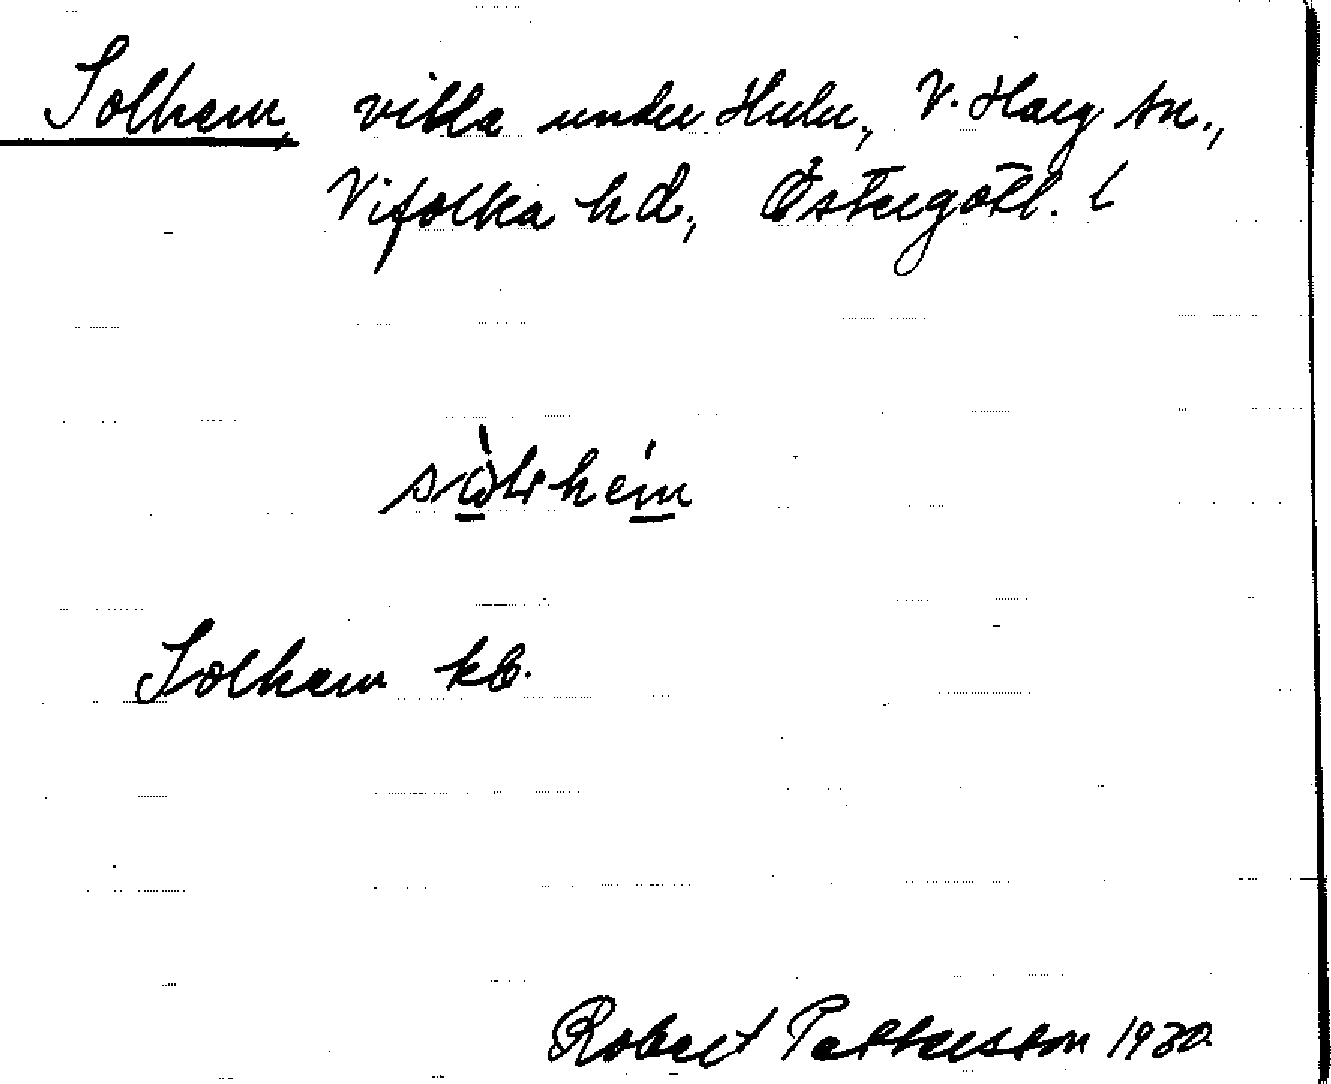 Solhem, villa under Hulu, V. Harg sn.,
Vifolka hd, Östergötl. l
Solhem kb.
Robert Pettersson 1930